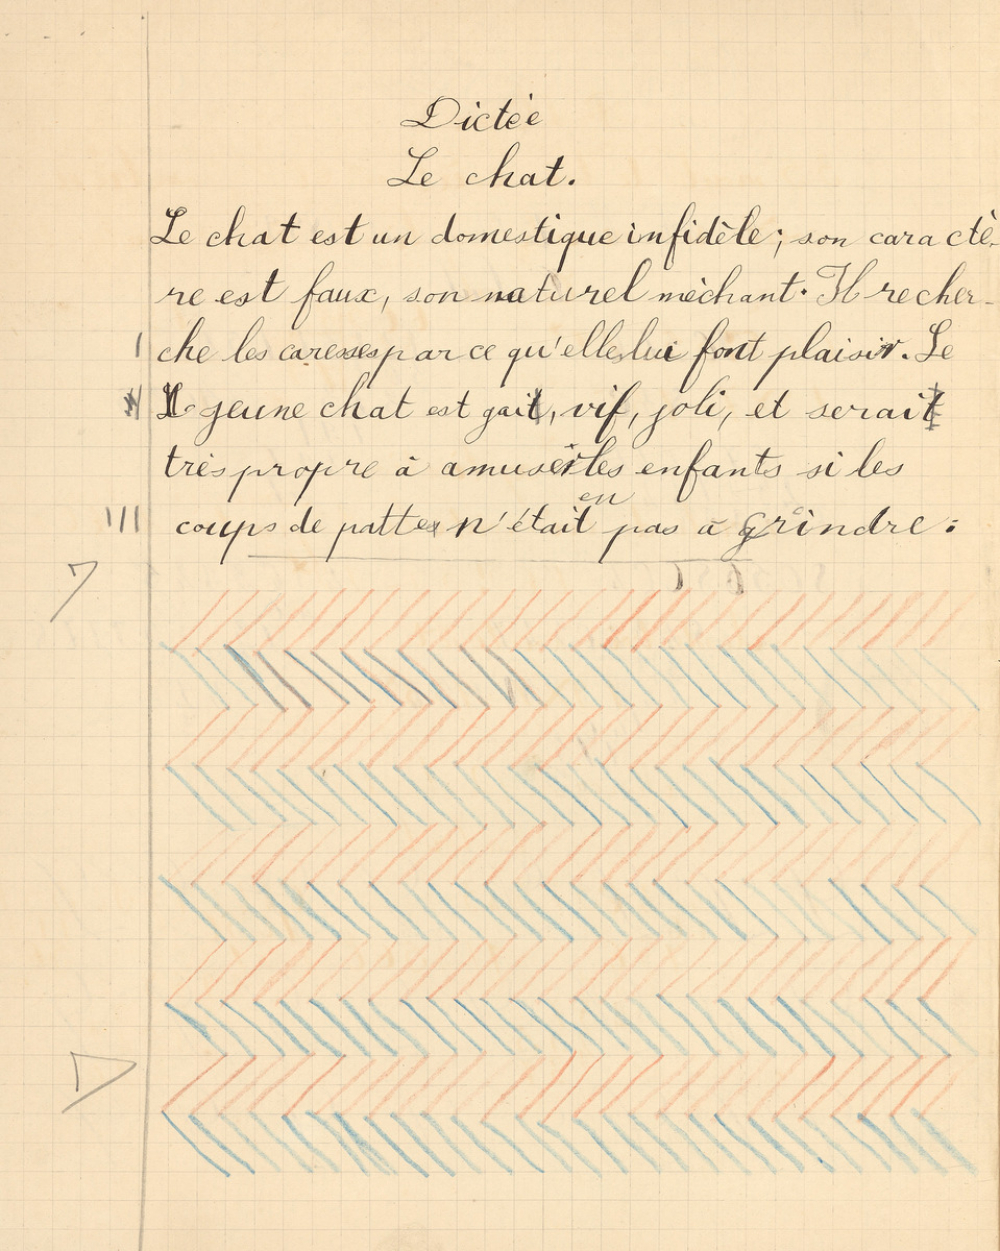 Dictée
Le chat.
Le chat est un domestique infidèle; son caractè-
re est faux, son naturel méchant. Il recher-
che les caresses parce qu'elles lui font plaisir. Le
jeune chat est gai, vif, joli, et serait
très propre à amuser les enfants si les
en
coups de patte n'était pas à grindre:
7